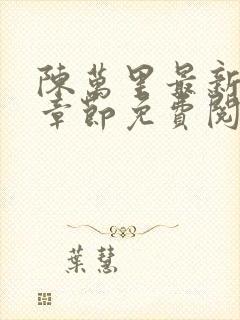 陳萬里最新
章節免費閱
葉慧